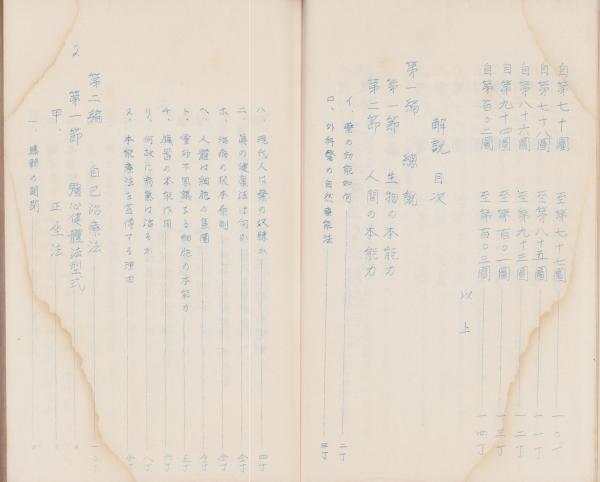 自第七十圖 至第七十七圖 一〇丁
自第七十八圖 至第八十五圖 一一丁
自第八十六圖 至第九十三圖 一二丁
自第九十四圖 至第百〇一圖 一三丁
自第百〇二圖 至第百〇三圖 一四丁
以上
解説目次
第一編 總説
第一節 生物の本能力
第二節 人間の本能力
イ、藥の効能如何 二丁
ロ、外科醫の自然療能法
ハ、現代人は藥の奴隷か 四丁
ニ、眞の健康法は何か
ホ、治病の根本原則
ヘ、人體は細胞の集團
ト、靈妙不思議なる細胞の本能力 五丁
チ、腦髓の本能作用 六丁
リ、何故に病氣は治るか 八丁
ヌ、本能療法を宣傳する理由
2
第二編 自己治療法 一〇丁
第一節 強心健體法型式
甲、正坐法
一、